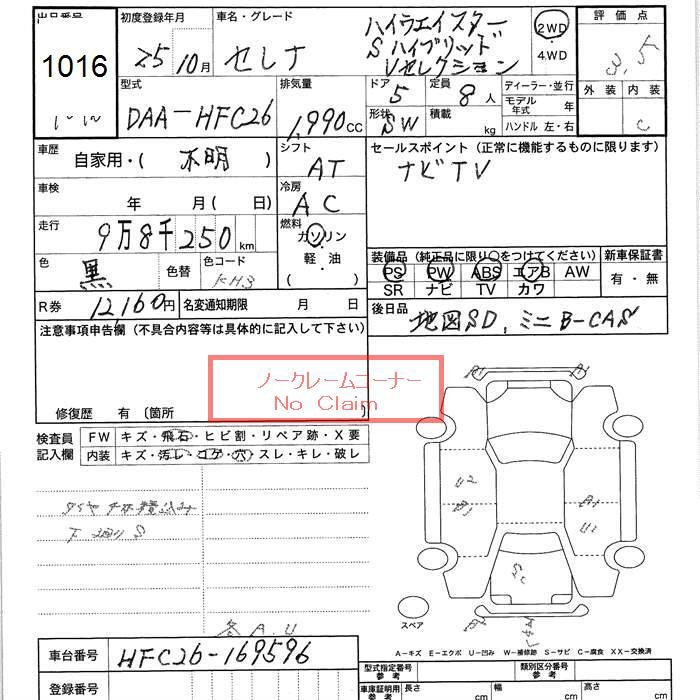 出品番号 初度登録年月 車名・グレード 評価点
1016 25 10月 セレナ ハイウェイスター
Sハイブリッド
Vセレクション
2WD
・
4WD
3.5
外装 内装
C
型式 排気量 ドア 定員 ディーラー・並行
DAA-HFC26 1,990cc 5 8人 モデル年式 年
形状 SW 積載 kg ハンドル 左・右
車歴 自家用・( 不明 ) シフト AT セールスポイント (正常に機能するものに限ります)
ナビTV
車検 年 月 ( 日) 冷房 AC
走行 9万8千250km 燃料 ガソリン
軽・油
( )
装備品 (純正品に限り○をつけてください) 新車保証書
PS PW ABS エアB AW 有・無
SR ナビ TV カワ
色 黒 色替 色コード KH3
R券 12,160円 名変通知期限 月 日 後日品 地図SD, ミニB-CAS
注意事項申告欄 (不具合内容等は具体的に記入して下さい)
ノークレームコーナー
No Claim
修復歴 有 〔箇所 〕
検査員記入欄 FW キズ・飛石・ヒビ割・リペア跡・X要
内装 キズ・汚レ・コゲ・穴・スレ・キレ・破レ
A1 A1
U2
B1
A1
U1
S
スペア
各A.U
A-キズ E-エクボ U-凹み W-補修跡 S-サビ C-腐食 XX-交換済
車台番号 HFC26-169596
登録番号
型式指定番号 参考 類別区分番号 参考
車庫証明用 参考 長さ cm 幅 cm 高さ cm